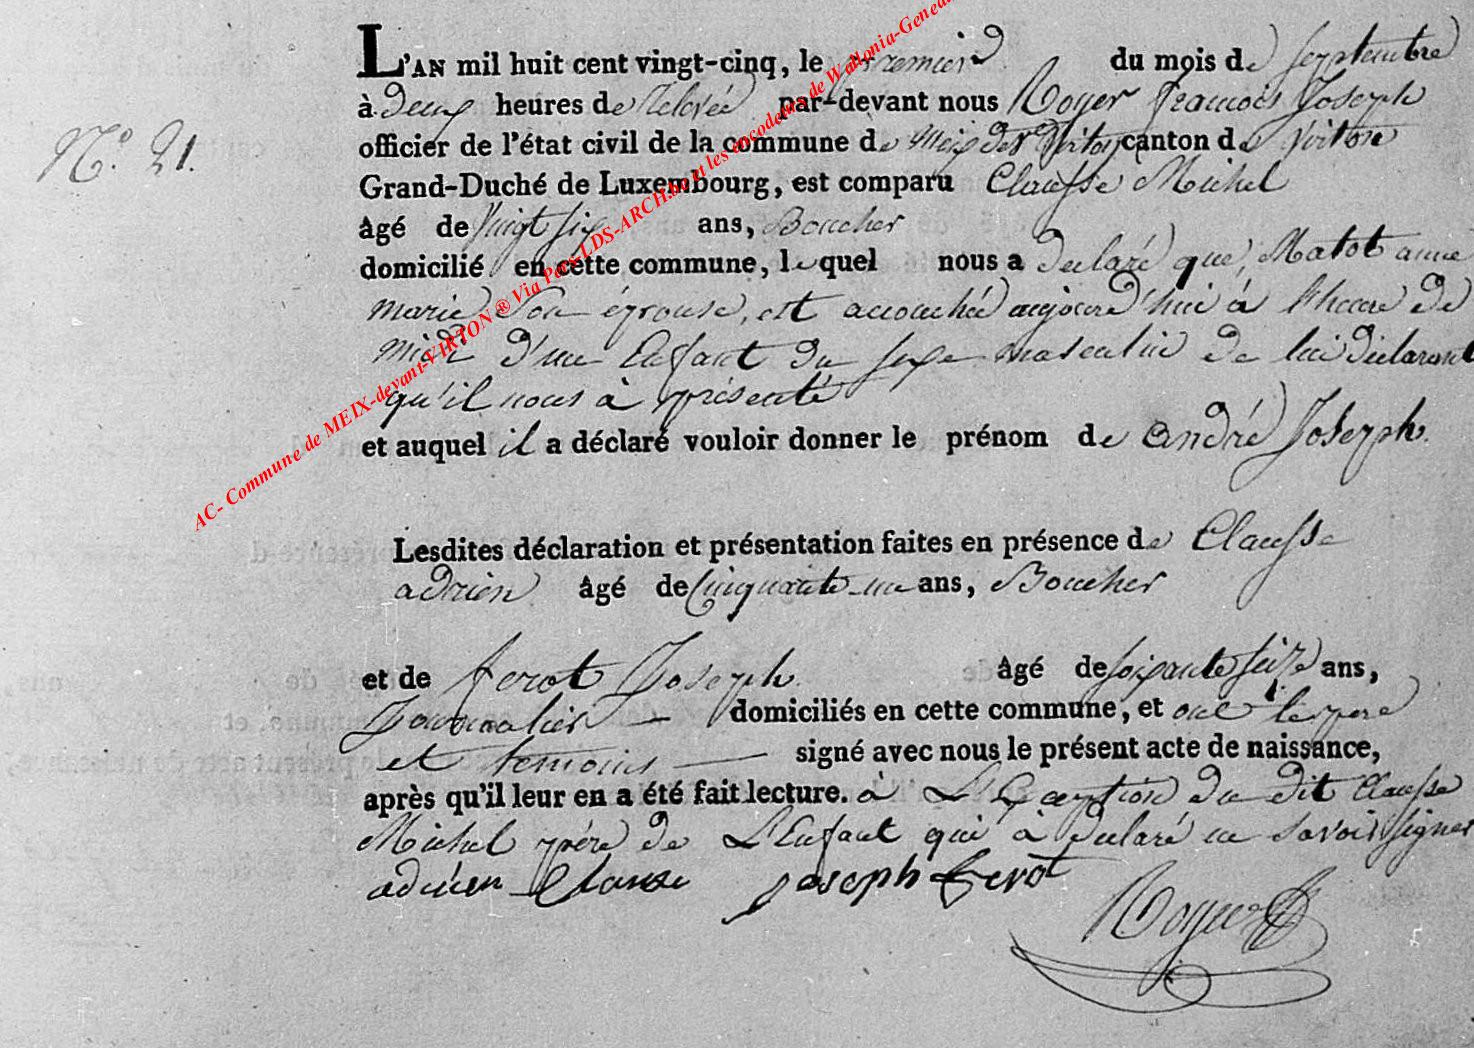 N.° 21.
L'AN mil huit cent vingt-cinq, le premier du mois de Septembre
à deux heures de relevée par-devant nous Royer francois Joseph
officier de l'état civil de la commune de Meix dev Virton canton de Virton
Grand-Duché de Luxembourg, est comparu Clausse Michel
âgé de Vingt six ans, Boucher
domicilié en cette commune, lequel nous a declaré que, Matot anne
marie Son épouse, est accouchée aujourd'hui à l'heure de
midi d'un Enfant du sexe masculin de lui déclarant
qu'il nous à présenté
et auquel il a déclaré vouloir donner le prénom de andré Joseph.
Lesdites déclaration et présentation faites en présence de Clausse
adrien âgé de Cinquante-un ans, Boucher
et de ferot Joseph. âgé de soixante seize ans,
Journalier domiciliés en cette commune, et ont les pere
et temoins signé avec nous le présent acte de naissance,
après qu'il leur en a été fait lecture. à L'Exception du dit Clausse
Michel père de L'Enfant qui à declaré ne savoir signer
adrien Clause joseph ferot
Royer
AC- Commune de MEIX-devant-VIRTON ® Via Parx-LDS-ARCH.be et les encodeurs de Wallonia-Genea